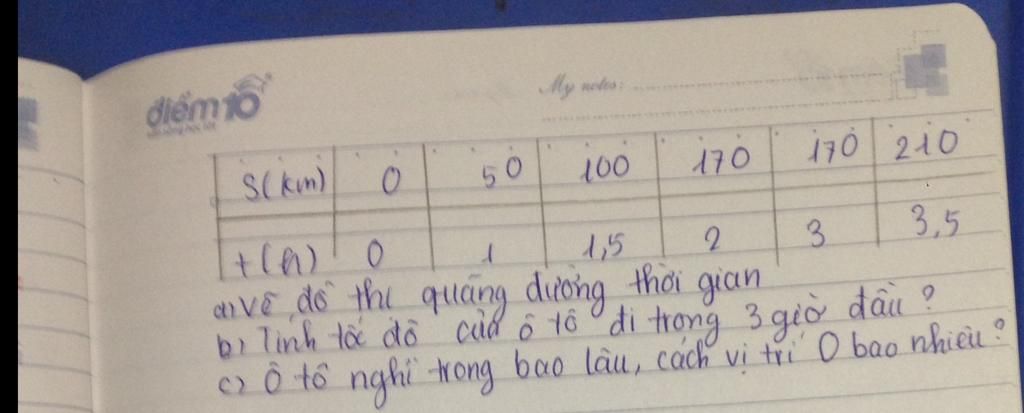 điểm10
My notes:
S(km) 0 50 100 170 170 210
t(h) 0 1 1,5 2 3 3,5
a) Vẽ đồ thị quãng đường thời gian
b) Tính tốc độ của ô tô đi trong 3 giờ đầu?
c) Ô tô nghỉ trong bao lâu, cách vị trí O bao nhiêu?